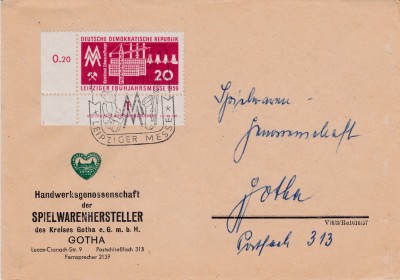 DEUTSCHE DEMOKRATISCHE REPUBLIK
0.20
20
LEIPZIGER FRÜHJAHRSMESSE 1959
LEIPZIGER MESSE
Spielwaren-
Genossenschaft
Gotha
Postfach 313
Handwerksgenossenschaft
der
SPIELWARENHERSTELLER
des Kreises Gotha e.G.m.b.H.
GOTHA
Lucas-Cranach-Str. 9 Postschließfach 313
Fernsprecher 2139